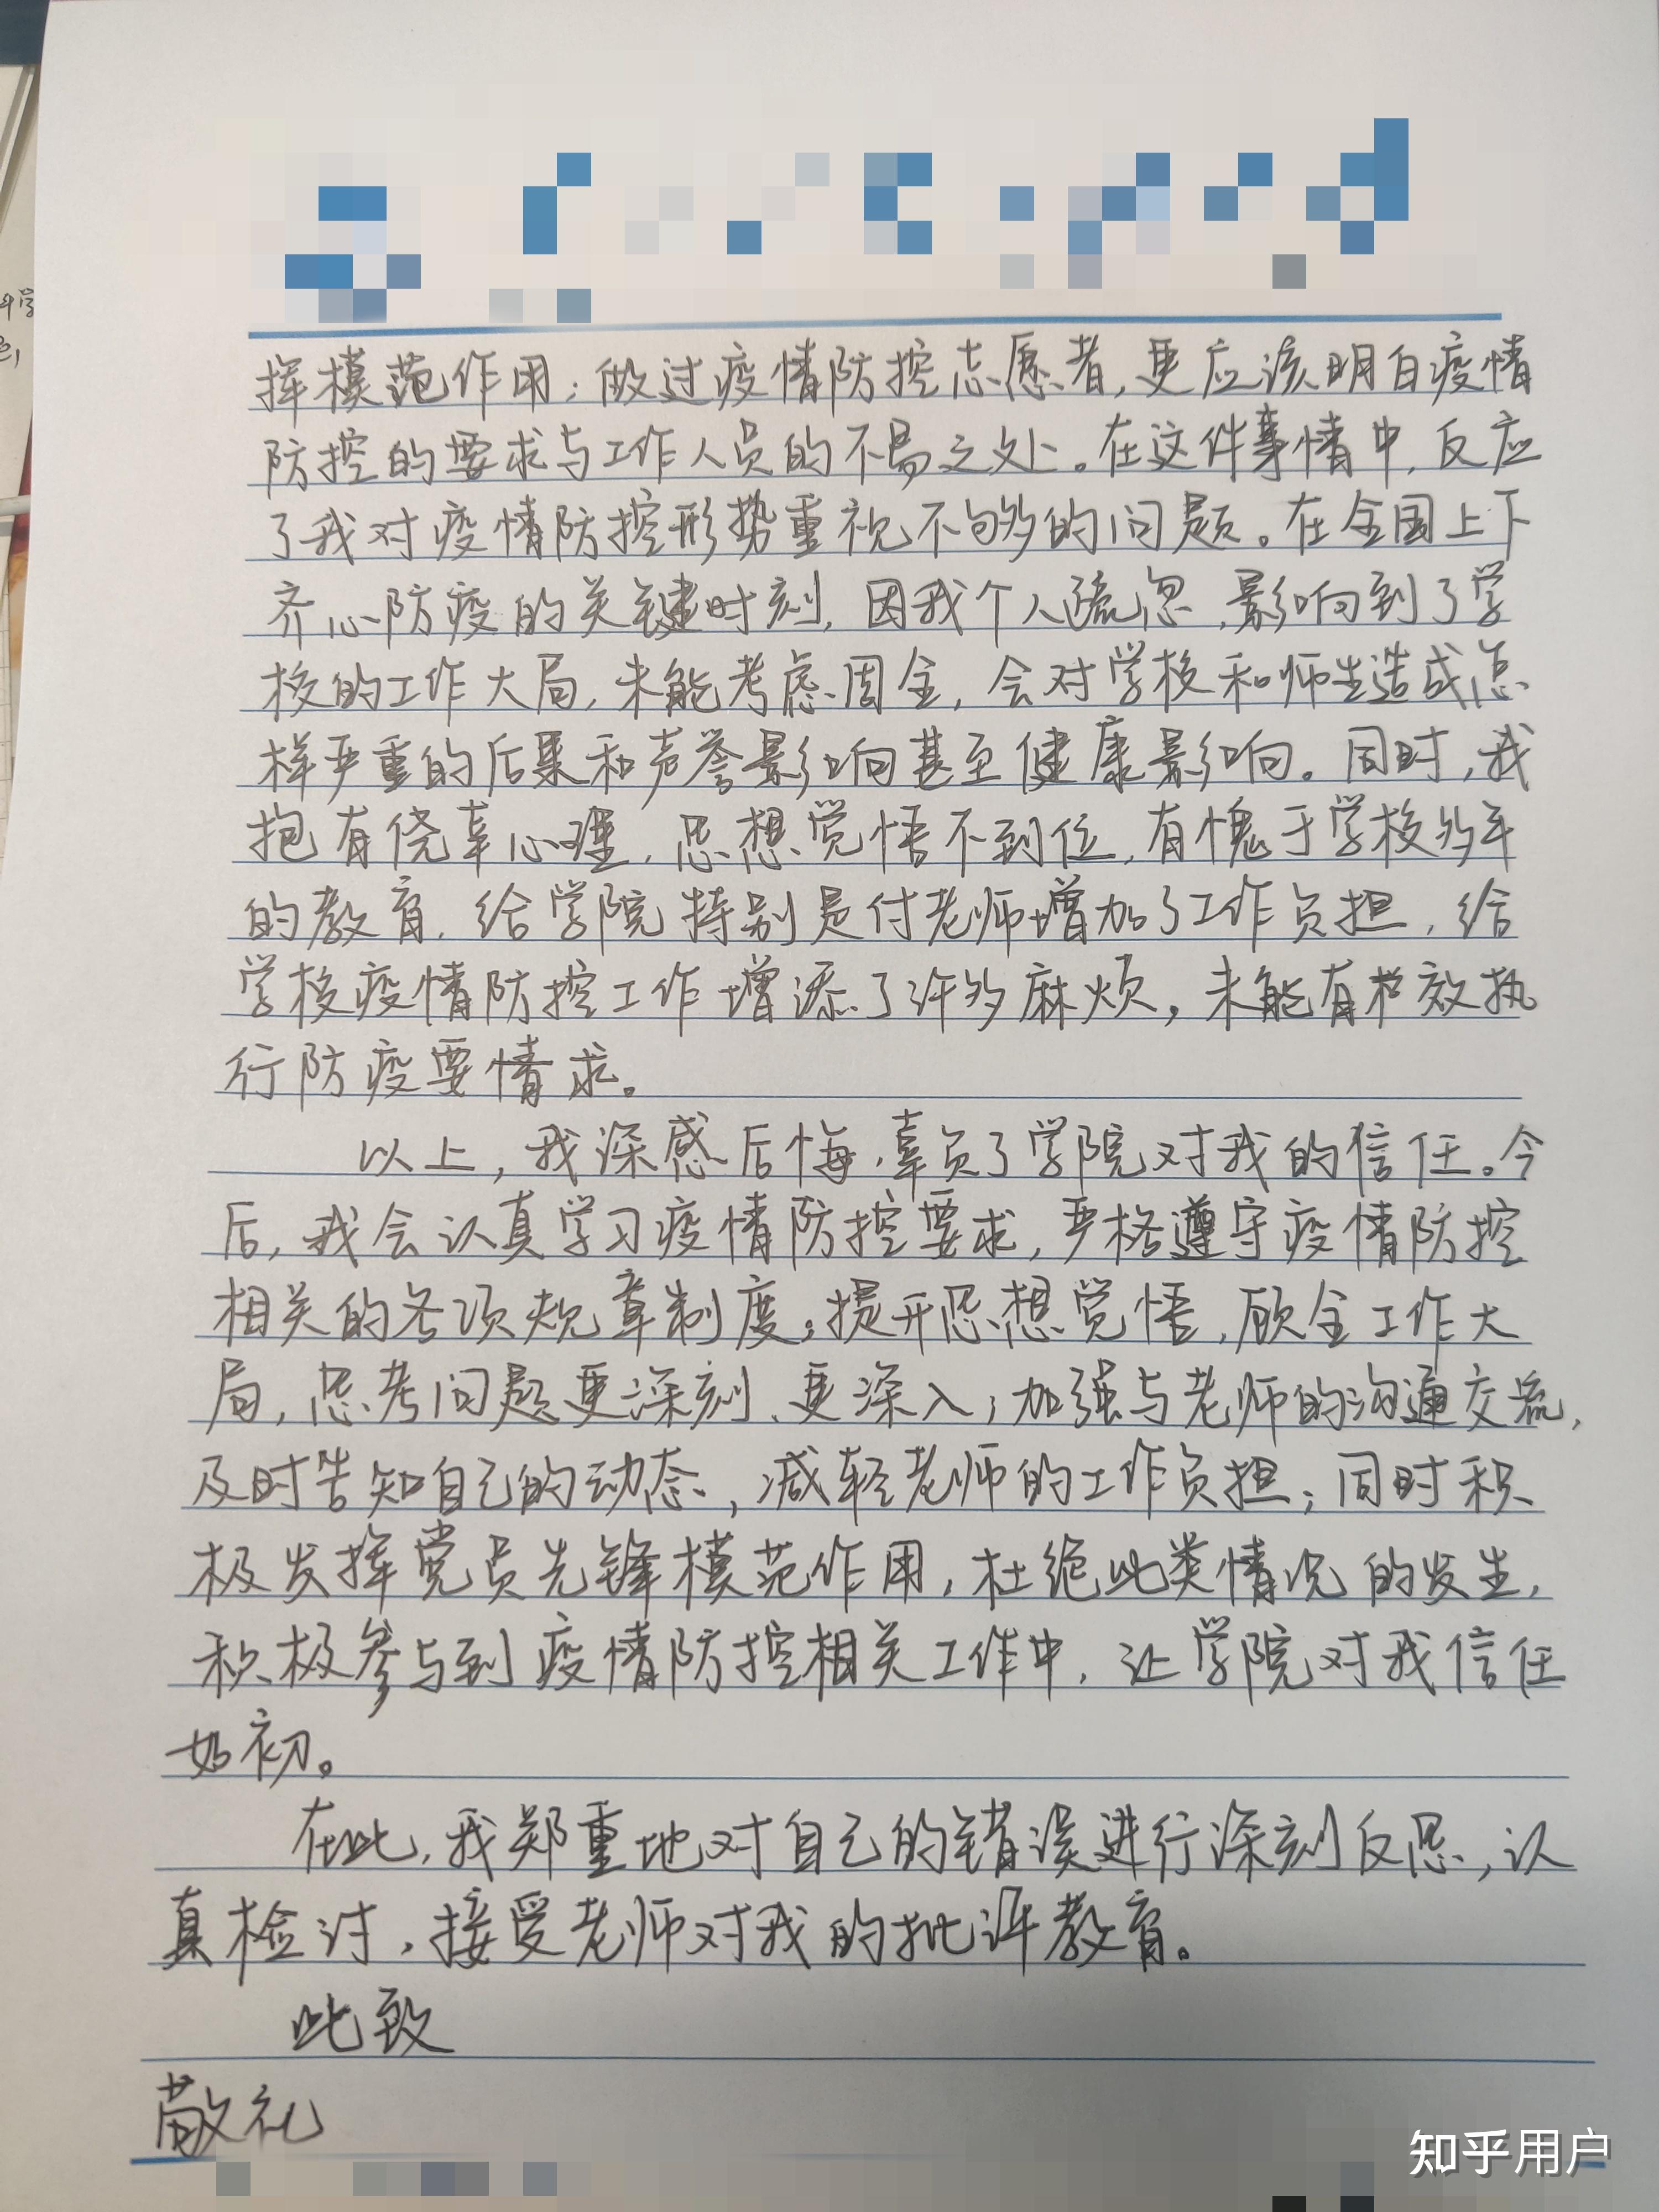 挥模范作用；做过疫情防控志愿者，更应该明白疫情
防控的要求与工作人员的不易之处。在这件事情中，反应
了我对疫情防控形势重视不够的问题。在全国上下
齐心防疫的关键时刻，因我个人疏忽，影响到了学
校的工作大局，未能考虑周全，会对学校和师生造成怎
样严重的后果和声誉影响甚至健康影响。同时，我
抱有侥幸心理，思想觉悟不到位，有愧于学校多年
的教育，给学院特别是付老师增加了工作负担，给
学校疫情防控工作增添了许多麻烦，未能有效执
行防疫要求。
以上，我深感后悔，辜负了学院对我的信任。今
后，我会认真学习疫情防控要求，严格遵守疫情防控
相关的各项规章制度；提升思想觉悟，顾全工作大
局，思考问题更深刻、更深入；加强与老师的沟通交流，
及时告知自己的动态，减轻老师的工作负担；同时积
极发挥党员先锋模范作用，杜绝此类情况的发生，
积极参与到疫情防控相关工作中，让学院对我信任
如初。
在此，我郑重地对自己的错误进行深刻反思，认
真检讨，接受老师对我的批评教育。
此致
敬礼
知乎用户